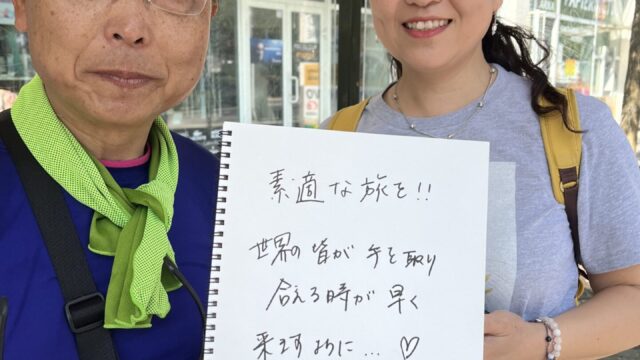 素適な旅を!!
世界の皆が手を取り
合える時が早く
来ますように…♡